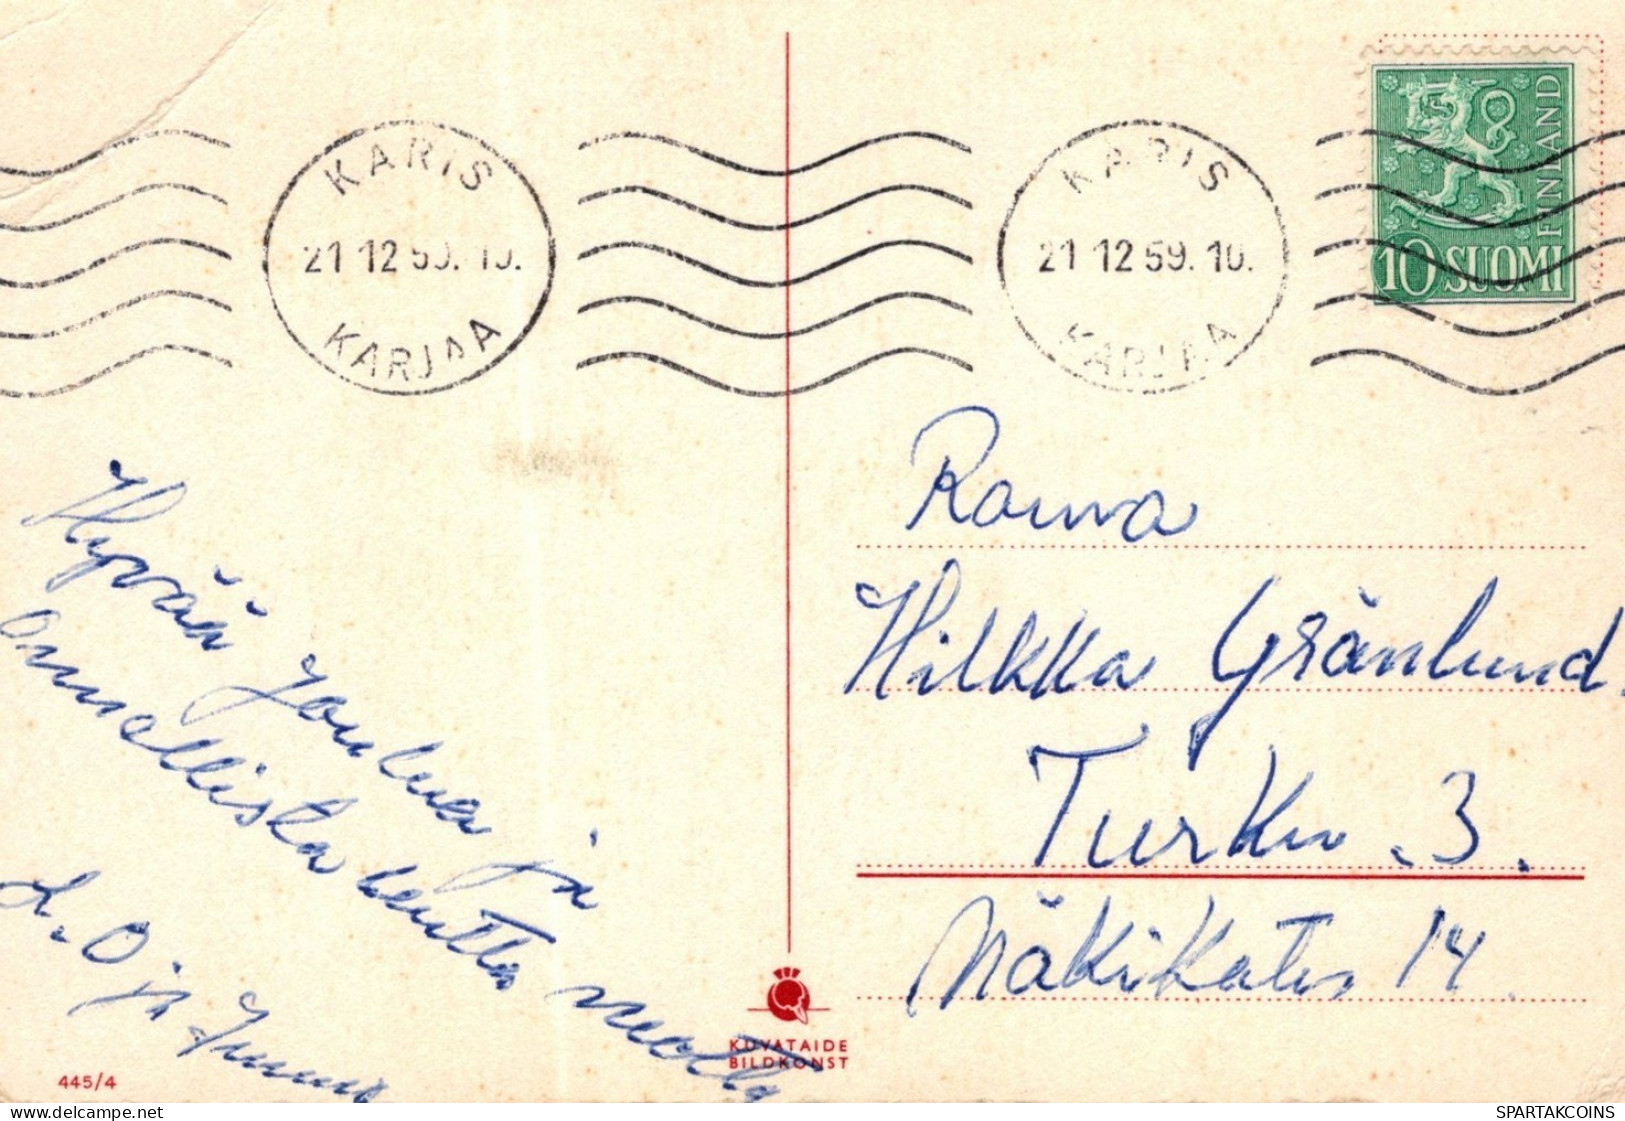 KARIS
21 12 59. 10.
KARJAA
KARIS
21 12 59. 10.
KARJAA
FINLAND
10 SUOMI
Rouva
Hilkka Gränlund.
Turku. 3.
Näkikatu 14.
Hyvää Joulua ja
Onnellista uutta vuotta
L. O ja
KUVATAIDE
BILDKONST
445/4
www.delcampe.net
SPARTAKCOINS